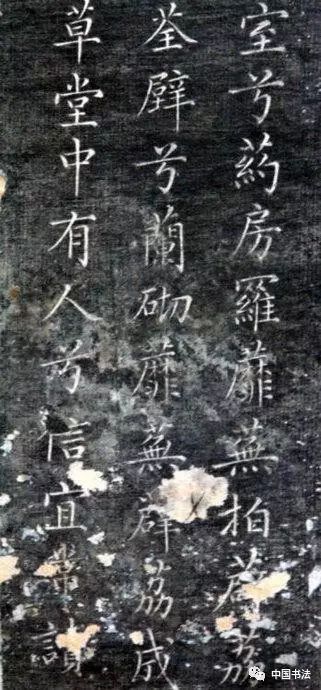 室兮葯房羅蘼蕪拍薜荔
荃壁兮蘭砌蘼蕪薜荔成
草堂中有人兮信宜常讀
中国书法